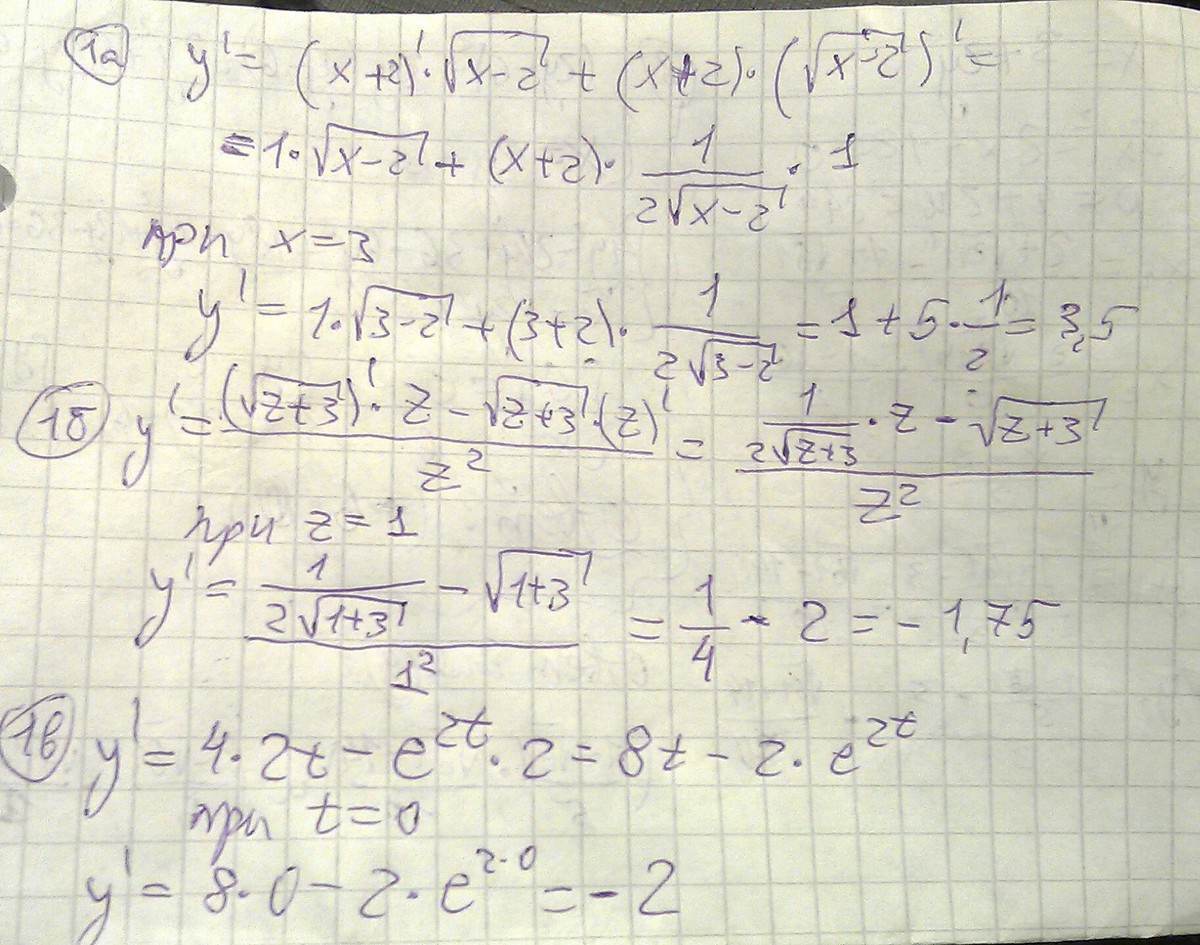 1а y' = (x+2)'·√(x-2) + (x+2)·(√(x-2))' =
= 1·√(x-2) + (x+2)· 1/(2√(x-2)) · 1
при x=3
y' = 1·√(3-2) + (3+2)· 1/(2√(3-2)) = 1+5·1/2 = 3,5
1б y' = ((√(z+3))'·z - √(z+3)·(z)')/z² = (1/(2√(z+3))·z - √(z+3))/z²
при z=1
y' = (1/(2√(1+3)) - √(1+3))/1² = 1/4 - 2 = -1,75
1в y' = 4·2t - e^(2t)·2 = 8t - 2·e^(2t)
при t=0
y' = 8·0 - 2·e^(2·0) = -2